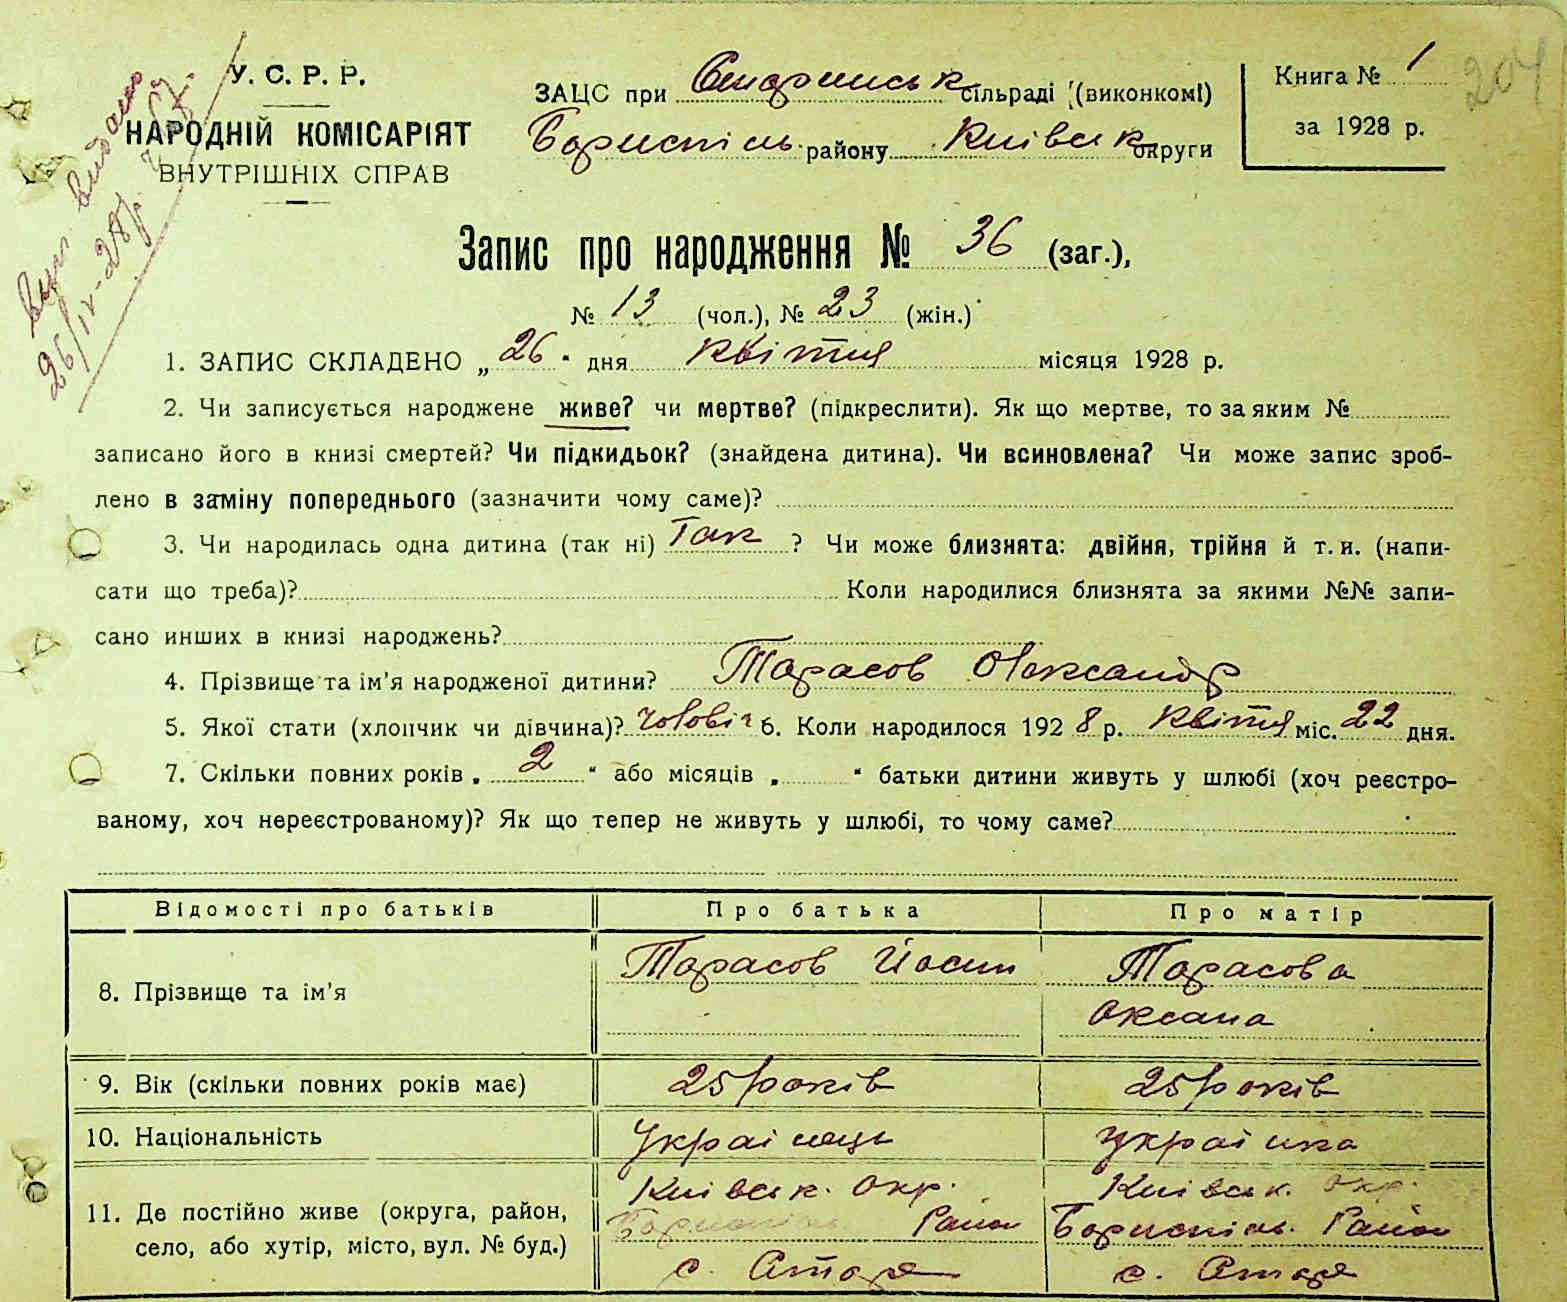 У. С. Р. Р.
НАРОДНІЙ КОМІСАРІЯТ
ВНУТРІШНІХ СПРАВ
26/IV-28р.
ЗАЦС при сільраді (виконкомі)
Бориспіль району Київськ округи
Книга № 1
за 1928 р.
204
Запис про народження № 36 (заг.),
№ 13 (чол.), № 23 (жін.)
1. ЗАПИС СКЛАДЕНО „ 26 " дня квітня місяця 1928 р.
2. Чи записується народжене живе? чи мертве? (підкреслити). Як що мертве, то за яким №
записано його в книзі смертей? Чи підкидьок? (знайдена дитина). Чи всиновлена? Чи може запис зроб-
лено в заміну попереднього (зазначити чому саме)?
3. Чи народилась одна дитина (так ні) Так ? Чи може близнята: двійня, трійня й т. и. (напи-
сати що треба)? Коли народилися близнята за якими №№ запи-
сано инших в книзі народжень?
4. Прізвище та ім’я народженої дитини? Тарасов Олександр
5. Якої стати (хлопчик чи дівчина)? чоловіч 6. Коли народилося 1928 р. квітня міс. 22 дня.
7. Скільки повних років „ 2 " або місяців „ " батьки дитини живуть у шлюбі (хоч реєстро-
ваному, хоч нереєстрованому)? Як що тепер не живуть у шлюбі, то чому саме?
Відомості про батьків Про батька Про матір
8. Прізвище та ім’я Тарасов Йосип Тарасова
Оксана
9. Вік (скільки повних років має) 25 років 25 років
10. Національність Українець Українка
11. Де постійно живе (округа, район,
село, або хутір, місто, вул. № буд.)
Київськ. Окр. Київськ. Окр.
Бориспіль. Район Бориспіль. Район
с. Старе с. Старе